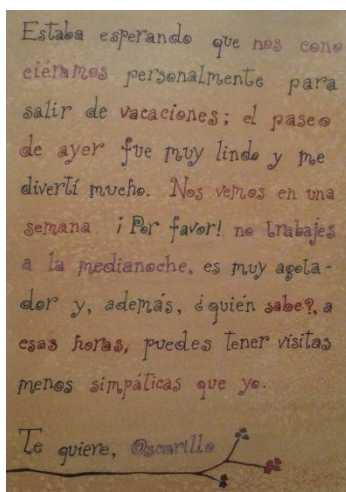 Estaba esperando que nos cono
ciéramos personalmente para
salir de vacaciones; el paseo
de ayer fue muy lindo y me
divertí mucho. Nos vemos en una
semana ¡Por favor! no trabajes
a la medianoche, es muy agota-
dor y, además, ¿quién sabe?, a
esas horas, puedes tener visitas
menos simpáticas que yo.
Te quiere, @scarillo